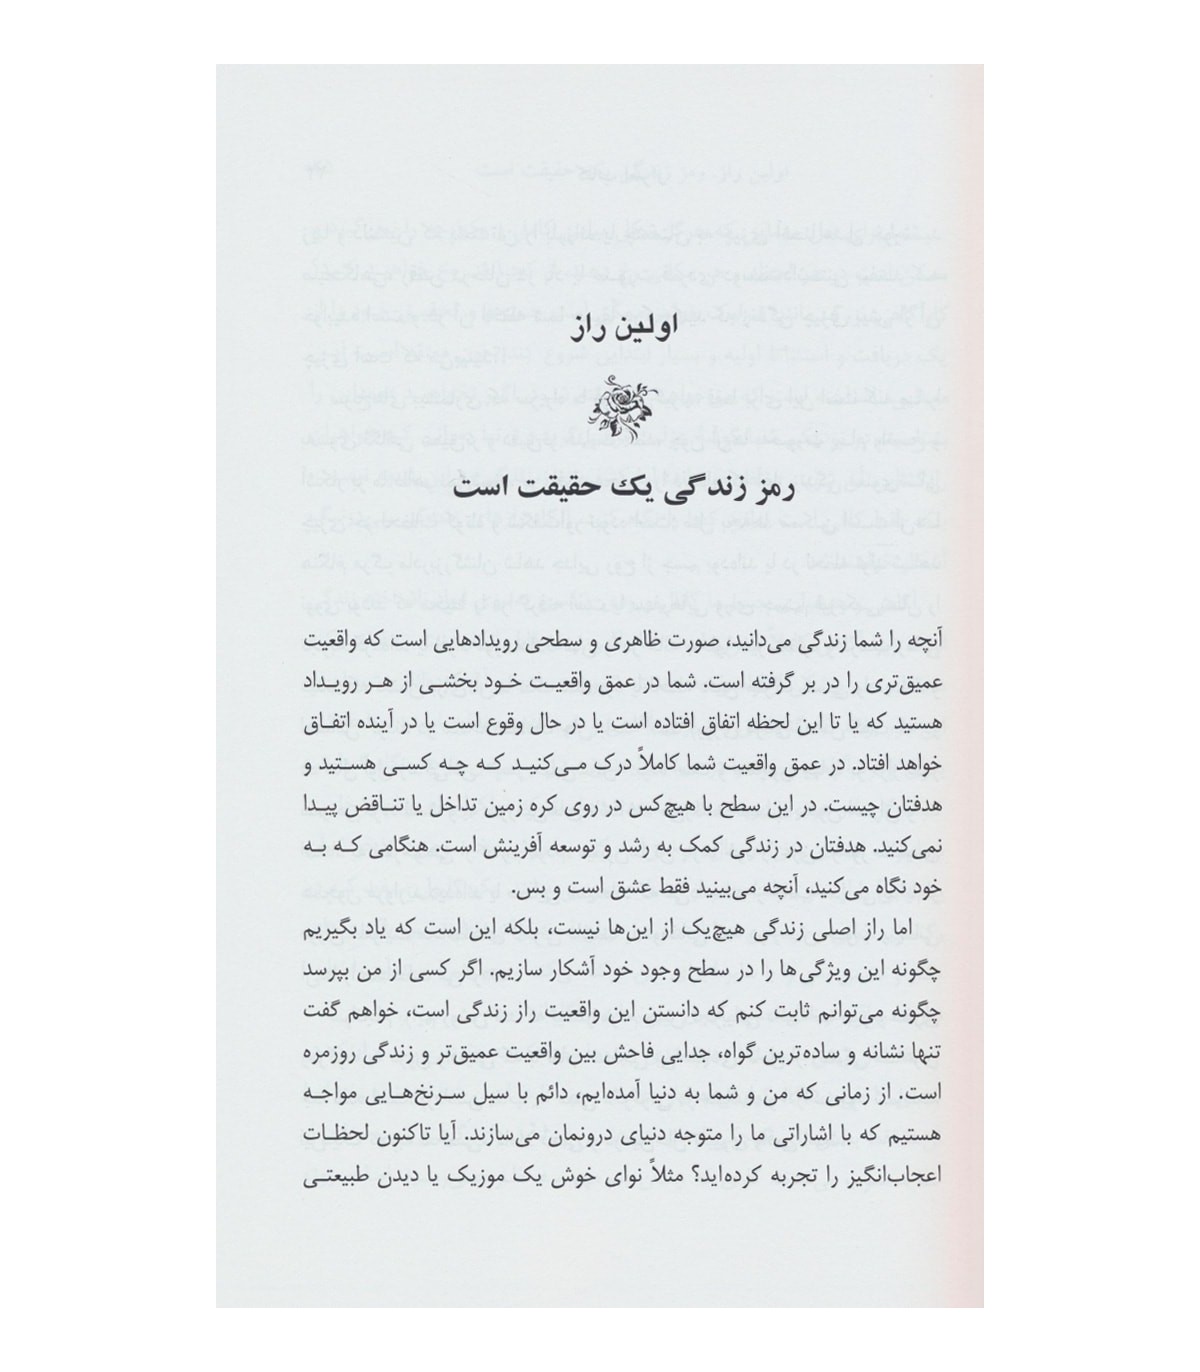 اولین راز
رمز زندگی یک حقیقت است
آنچه را شما زندگی می‌دانید، صورت ظاهری و سطحی رویدادهایی است که واقعیت
عمیق‌تری را در بر گرفته است. شما در عمق واقعیت خود بخشی از هر رویداد
هستید که یا تا این لحظه اتفاق افتاده است یا در حال وقوع است یا در آینده اتفاق
خواهد افتاد. در عمق واقعیت شما کاملاً درک می‌کنید که چه کسی هستید و
هدفتان چیست. در این سطح با هیچ‌کس در روی کره زمین تداخل یا تناقض پیدا
نمی‌کنید. هدفتان در زندگی کمک به رشد و توسعه آفرینش است. هنگامی که به
خود نگاه می‌کنید، آنچه می‌بینید فقط عشق است و بس.
اما راز اصلی زندگی هیچ‌یک از این‌ها نیست، بلکه این است که یاد بگیریم
چگونه این ویژگی‌ها را در سطح وجود خود آشکار سازیم. اگر کسی از من بپرسد
چگونه می‌توانم ثابت کنم که دانستن این واقعیت راز زندگی است، خواهم گفت
تنها نشانه و ساده‌ترین گواه، جدایی فاحش بین واقعیت عمیق‌تر و زندگی روزمره
است. از زمانی که من و شما به دنیا آمده‌ایم، دائم با سیل سرنخ‌هایی مواجه
هستیم که با اشاراتی ما را متوجه دنیای درونمان می‌سازند. آیا تاکنون لحظات
اعجاب‌انگیز را تجربه کرده‌اید؟ مثلاً نوای خوش یک موزیک یا دیدن طبیعتی